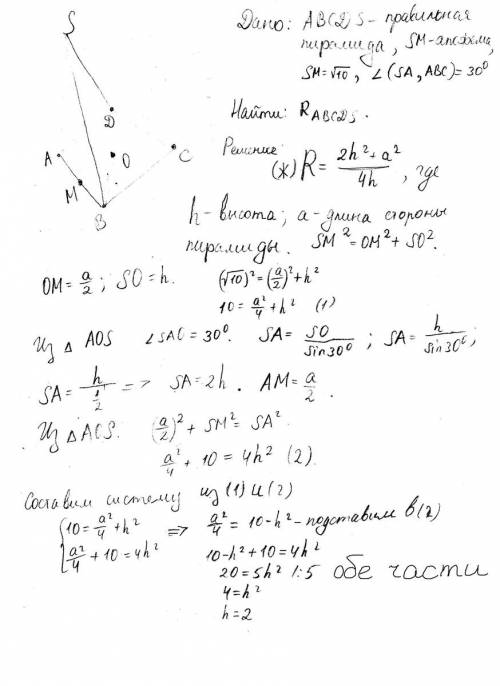 S
D
A
O
C
M
B
Дано: ABCDS - правильная
пирамида, SM - апофема,
SM = √10, ∠(SA, ABC) = 30°
Найти: R ABCDS.
Решение:
(ж) R = (2h² + a²)/(4h), где
h - высота; a - длина стороны
пирамиды. SM² = OM² + SO².
OM = a/2; SO = h. (√10)² = (a/2)² + h²
10 = a²/4 + h² (1)
Из △ AOS ∠SAO = 30°. SA = SO/sin30°; SA = h/sin30°;
SA = h/(1/2) => SA = 2h. AM = a/2.
Из △ AOS. (a/2)² + SM² = SA²
a²/4 + 10 = 4h² (2).
Составим систему из (1) и (2)
{10 = a²/4 + h² => a²/4 = 10 - h² - подставим в (2)
{a²/4 + 10 = 4h² 10 - h² + 10 = 4h²
20 = 5h² |:5 обе части
4 = h²
h = 2